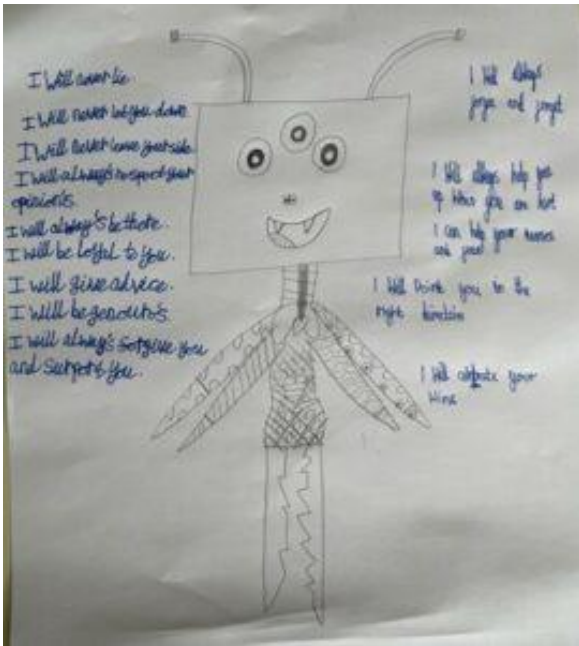 I Will never lie.
I Will never let you down.
I Will never leave your side.
I will always respect your
opinion's.
I will alway's be there.
I will be loyal to you.
I will give advice.
I will be generous.
I will alway's forgive you
and Support you.
I Will always
and forget
I Will always help you
up when you are
I can help your
and
I Will Point you to the
right
I Will your